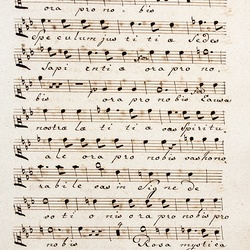 ora pro no bis
Speculum jus ti ti a Sedes
Sapi enti a ora pro no
bis ora pro nobis Causa
nostra la ti ti a vas Spiritu
ale ora pro nobis vas hono
rabile vas in Signe de
vo ti o nis ora pro nobis pro
nobis Rosa mystica